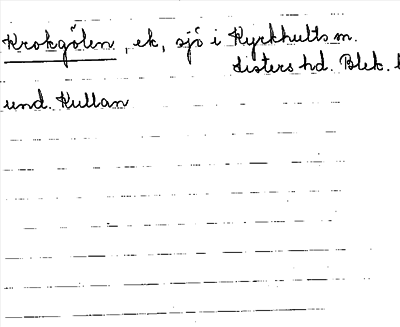 Krokgölen, ek, sjö i Kyrkhults m.
Listers hd. Blek. l
und. Kullan